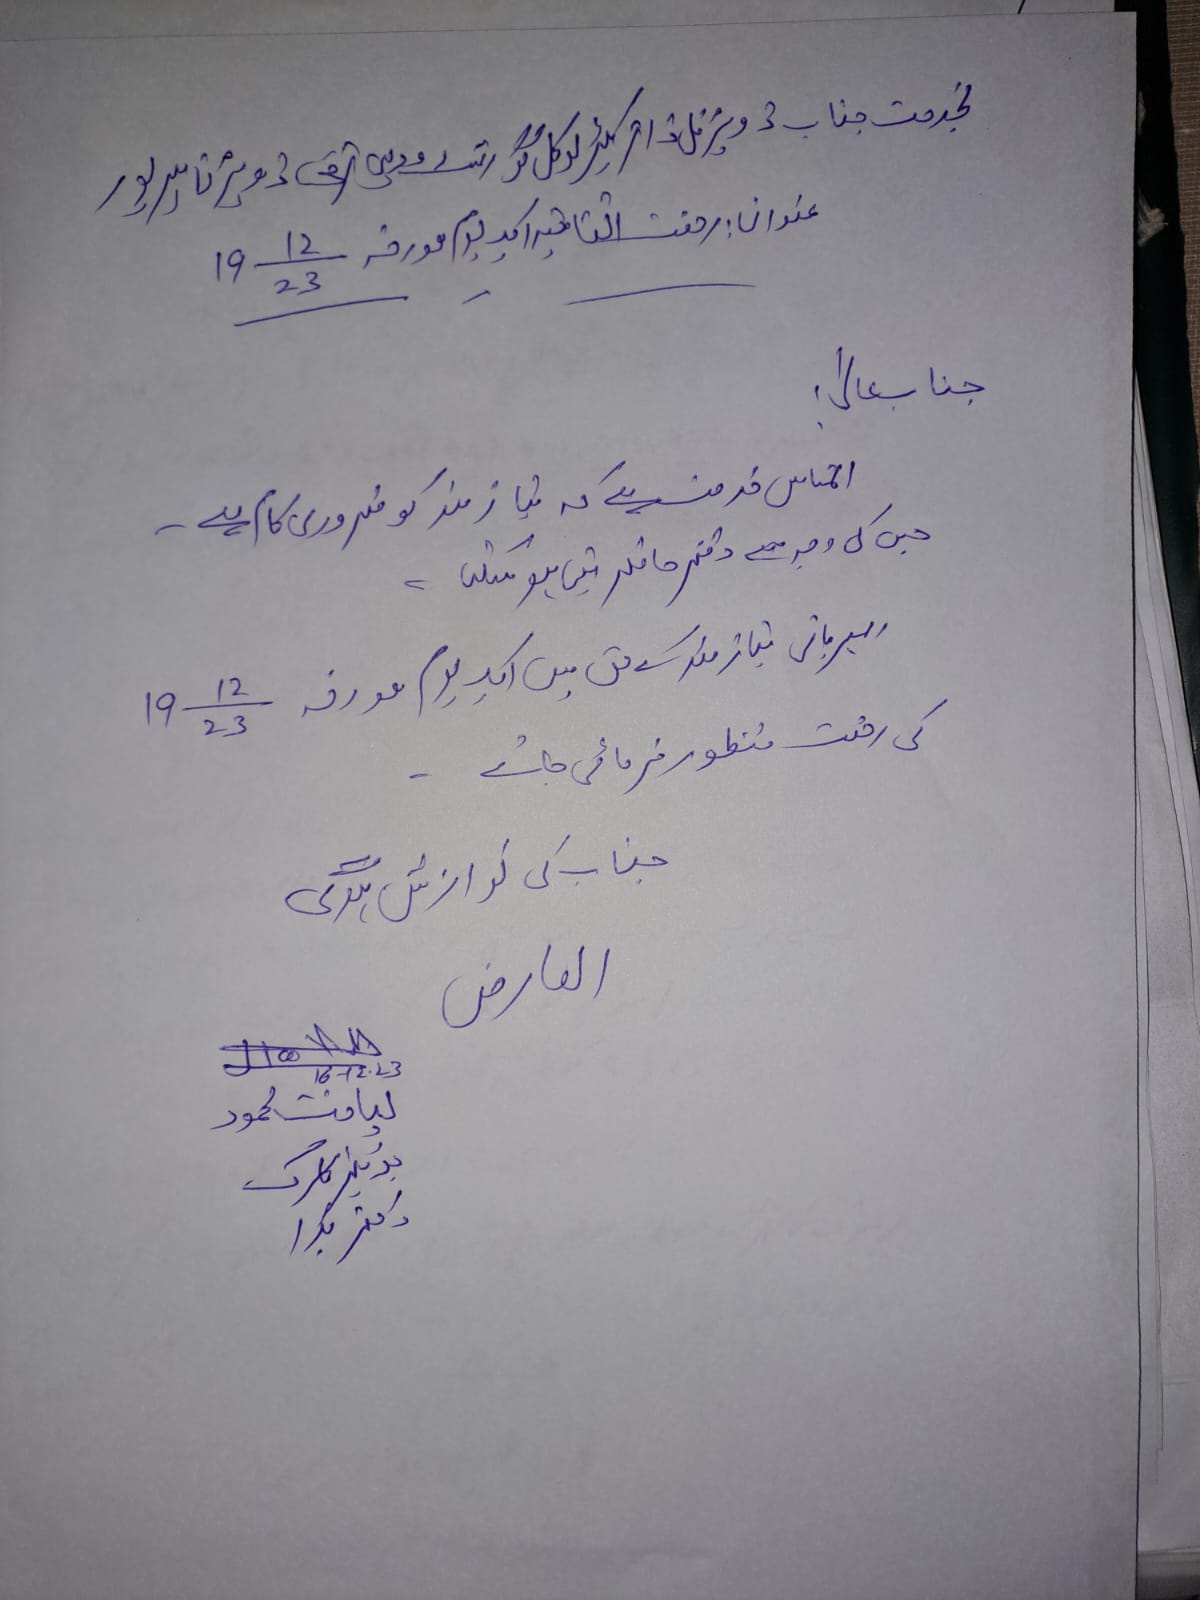 بخدمت جناب ڈویژنل ڈائریکٹر لوکل گورنمنٹ و دیہی ترقی ڈویژن میرپور
عنوان: رخصت اتفاقیہ ایک یوم مورخہ 19-12-23
جناب عالی!
التماس خدمت ہے کہ نیاز مند کو ضروری کام ہے۔
جس کی وجہ سے دفتر حاضر نہیں ہو سکتا۔
مہربانی نیاز مند کے حق میں ایک یوم مورخہ 19-12-23
کی رخصت منظور فرمائی جائے۔
جناب کی نوازش ہوگی
العارض
16-12-23
لیاقت محمود
جونیئر کلرک
دفتر ہذا